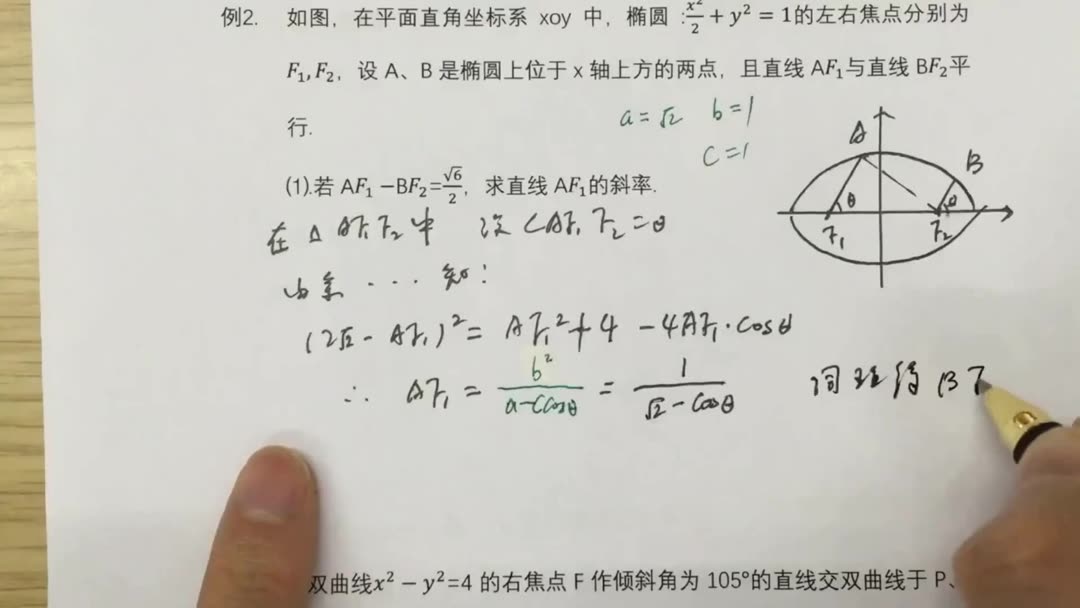 例2. 如图，在平面直角坐标系 xoy 中，椭圆 :x²/2 + y² = 1的左右焦点分别为
F₁,F₂，设 A、B 是椭圆上位于 x 轴上方的两点，且直线 AF₁与直线 BF₂平
行.
a=√2 b=1
c=1
A
B
θ
θ
F₁
F₂
(1).若 AF₁ −BF₂=√6/2，求直线 AF₁的斜率.
在 △ AF₁F₂中 设 ∠AF₁F₂=θ
由余 ··· 知：
(2√2 - AF₁)² = AF₁² + 4 - 4AF₁·cosθ
∴ AF₁ = b²/(a-ccosθ) = 1/(√2-cosθ) 同理得 BF
双曲线x² − y²=4 的右焦点 F 作倾斜角为 105°的直线交双曲线于 P、